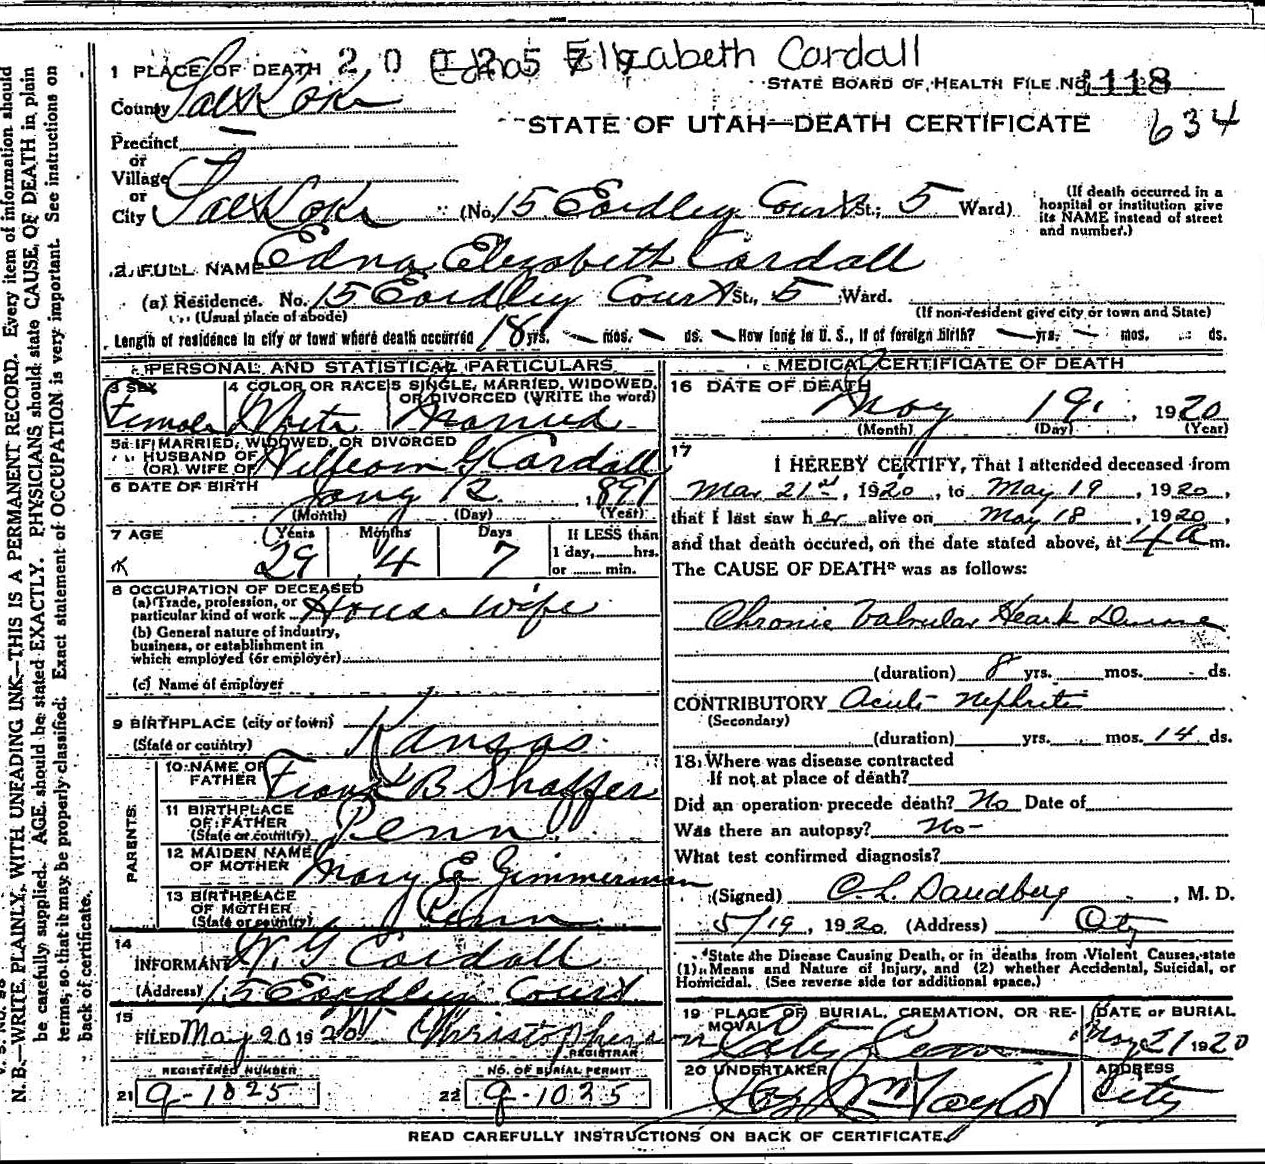 Edna Elizabeth Cardall
1 PLACE OF DEATH 2 0 0 2 5 7 9
STATE BOARD OF HEALTH FILE NO. 1118
County Salt Lake
634
STATE OF UTAH—DEATH CERTIFICATE
Precinct
or
Village
or
City Salt Lake (No. 15 Eardley Court St.; 5 Ward)
(If death occurred in a
hospital or institution give
its NAME instead of street
and number.)
2. FULL NAME Edna Elizabeth Cardall
(a) Residence. No. 15 Eardley Court St., 5 Ward.
(Usual place of abode) (If non-resident give city or town and State)
Length of residence in city or town where death occurred 18 yrs. — mos. — ds. — How long in U. S., if of foreign birth? — yrs. — mos. ds.
PERSONAL AND STATISTICAL PARTICULARS
3 SEX
Female
4 COLOR OR RACE
White
5 SINGLE, MARRIED, WIDOWED,
OR DIVORCED (WRITE the word)
Married
5a IF MARRIED, WIDOWED, OR DIVORCED
HUSBAND OF
(OR) WIFE OF William G Cardall
6 DATE OF BIRTH Jany 12 1891
(Month) (Day) (Year)
7 AGE Years Months Days
29 4 7
If LESS than
1 day, hrs.
or min.
8 OCCUPATION OF DECEASED
(a) Trade, profession, or
particular kind of work House wife
(b) General nature of industry,
business, or establishment in
which employed (or employer)
(c) Name of employer
9 BIRTHPLACE (city or town)
(State or country) Kansas.
PARENTS.
10 NAME OF
FATHER Frank B Shaffer
11 BIRTHPLACE
OF FATHER
(State or country) Penn
12 MAIDEN NAME
OF MOTHER Mary E Zimmerman
13 BIRTHPLACE
OF MOTHER
(State or country) Penn
14
INFORMANT W. G Cardall
(Address) 15 Eardley Court
15
FILED May 20 1920 Christophers
REGISTRAR
REGISTERED NUMBER
21 9-1825
NO. OF BURIAL PERMIT
22 9-1025
MEDICAL CERTIFICATE OF DEATH
16 DATE OF DEATH
May 19, 1920
(Month) (Day) (Year)
17
I HEREBY CERTIFY, That I attended deceased from
Mar 21st, 1920, to May 19, 1920,
that I last saw her alive on May 18, 1920,
and that death occured, on the date stated above, at 4 a m.
The CAUSE OF DEATH* was as follows:
Chronic Valvular Heart Disease
(duration) 8 yrs. mos. ds.
CONTRIBUTORY Acute Nephritis
(Secondary)
(duration) yrs. mos. 14 ds.
18. Where was disease contracted
If not at place of death?
Did an operation precede death? No Date of
Was there an autopsy? No-
What test confirmed diagnosis?
(Signed) C. L. Sandberg, M. D.
5/19, 1920. (Address) City
*State the Disease Causing Death, or in deaths from Violent Causes, state
(1) Means and Nature of Injury, and (2) whether Accidental, Suicidal, or
Homicidal. (See reverse side for additional space.)
19 PLACE OF BURIAL, CREMATION, OR RE-
MOVAL
City Cem
DATE OF BURIAL
May 21 1920
20 UNDERTAKER
Jos Wm Taylor
ADDRESS
City
READ CAREFULLY INSTRUCTIONS ON BACK OF CERTIFICATE.
N. B.—WRITE PLAINLY, WITH UNFADING INK—THIS IS A PERMANENT RECORD. Every item of information should
be carefully supplied. AGE should be stated EXACTLY. PHYSICIANS should state CAUSE OF DEATH in plain
terms, so that it may be properly classified. Exact statement of OCCUPATION is very important. See instructions on
back of certificate.